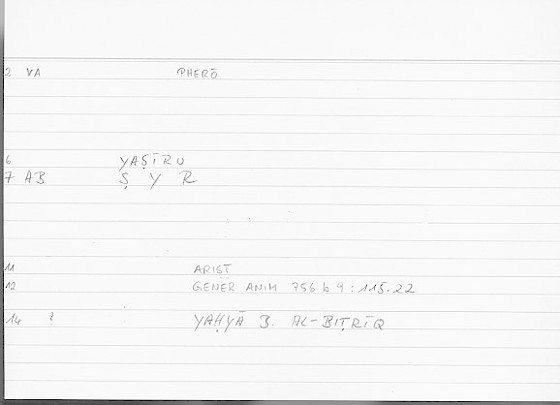 2 VA PHERŌ
6 YAṢĪRU
7 AB Ṣ Y R
11 ARIST
12 GENER ANIM 756 b 9 : 115.22
14 ? YAḤYĀ B. AL-BIṬRĪQ